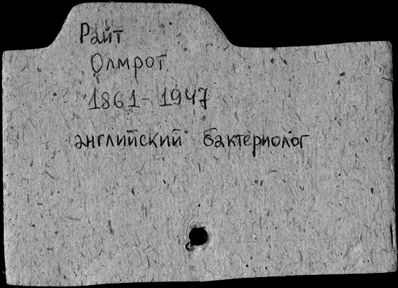 Райт
Олмрот
1861-1947
английский бактериолог